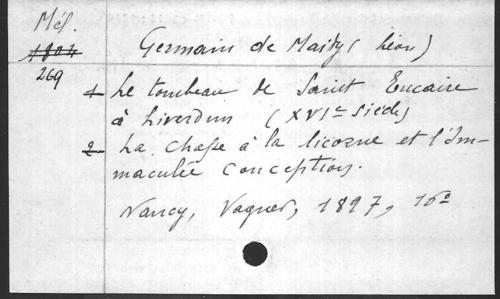 Mél.
1804
269
Germain de Maidy (Léon)
1 Le tombeau de Saint Eucaire
à Liverdun (XVIe siècle)
2 La chasse à la licorne et l'Im-
maculée Conception.
Nancy, Vagner, 1897, 16°